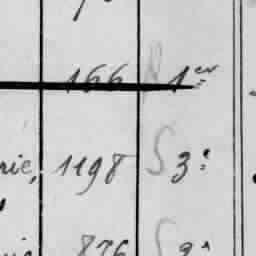 166 1er
rie, 1198 S 3e
876 S